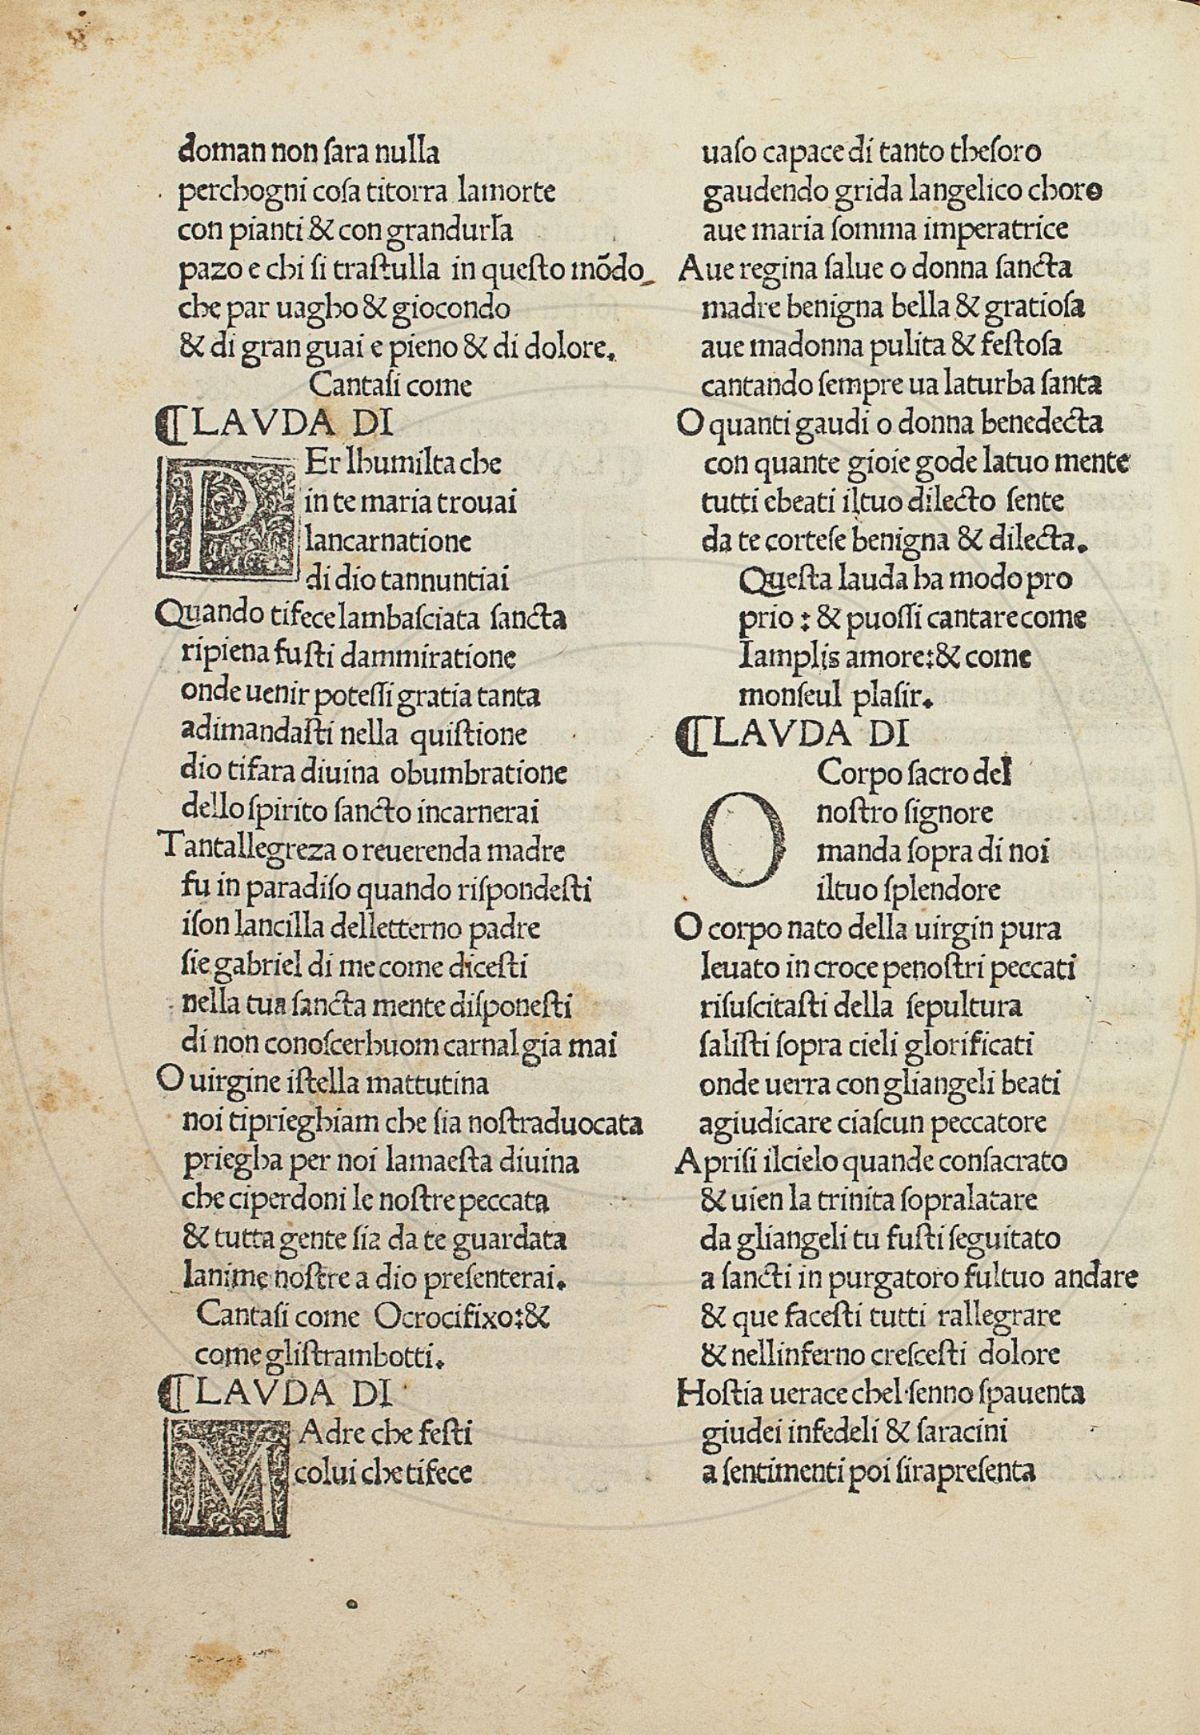 doman non sara nulla
perchogni cosa titorra lamorte
con pianti & con grandurla
pazo e chi si trastulla in questo mōdo
che par uagho & giocondo
& di gran guai e pieno & di dolore.
Cantasi come
¶LAVDA DI
PEr lhumilta che
in te maria trouai
lancarnatione
di dio tannuntiai
Quando tifece lambasciata sancta
ripiena fusti dammiratione
onde uenir potessi gratia tanta
adimandasti nella quistione
dio tifara diuina obumbratione
dello spirito sancto incarnerai
Tantallegreza o reuerenda madre
fu in paradiso quando rispondesti
ison lancilla delletterno padre
sie gabriel di me come dicesti
nella tua sancta mente disponesti
di non conoscerhuom carnal gia mai
O uirgine istella mattutina
noi tiprieghiam che sia nostraduocata
priegha per noi lamaesta diuina
che ciperdoni le nostre peccata
& tutta gente sia da te guardata
lanime nostre a dio presenterai.
Cantasi come Ocrocifixo:&
come glistrambotti.
¶LAVDA DI
MAdre che festi
colui che tifece
uaso capace di tanto thesoro
gaudendo grida langelico choro
aue maria somma imperatrice
Aue regina salue o donna sancta
madre benigna bella & gratiosa
aue madonna pulita & festosa
cantando sempre ua laturba santa
O quanti gaudi o donna benedecta
con quante gioie gode latuo mente
tutti ebeati iltuo dilecto sente
da te cortese benigna & dilecta.
Questa lauda ha modo pro
prio : & puossi cantare come
Iamplis amore:& come
monseul plasir.
¶LAVDA DI
O Corpo sacro del
nostro signore
manda sopra di noi
iltuo splendore
O corpo nato della uirgin pura
leuato in croce penostri peccati
risuscitasti della sepultura
salisti sopra cieli glorificati
onde uerra con gliangeli beati
agiudicare ciascun peccatore
Aprisi ilcielo quande consacrato
& uien la trinita sopralatare
da gliangeli tu fusti seguitato
a sancti in purgatoro fultuo andare
& que facesti tutti rallegrare
& nellinferno crescesti dolore
Hostia uerace chel senno spauenta
giudei infedeli & saracini
a sentimenti poi sirapresenta